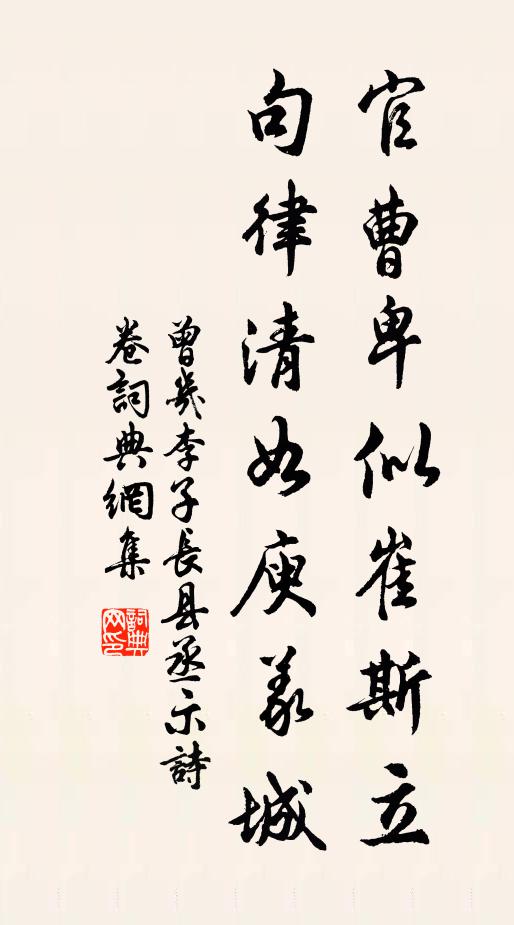 官曹卑似崔斯立
句律清如庾義城
曾幾李子長县丞示詩
卷詞典網集
詞典网印